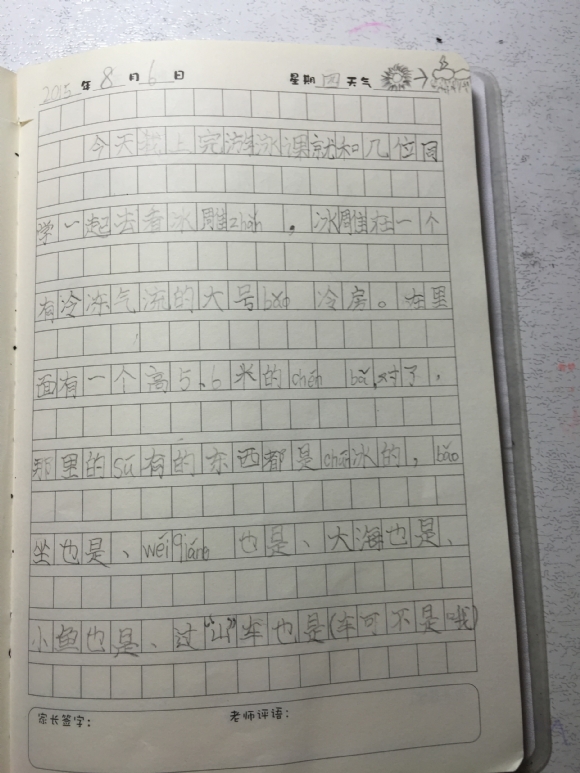 2015年8月6日 星期四天气
今天我上完游泳课就和几位同
学一起去看冰雕zhǎn，冰雕在一个
有冷冻气流的大号bǎo 冷房。在里
面有一个高5.6米的chén bǎ,对了，
那里的Sǔ有的东西都是chǔn冰的，bǎo
坐也是、wéiqiáng 也是、大海也是、
小鱼也是、过"山"车也是(车可不是哦)
家长签字： 老师评语：